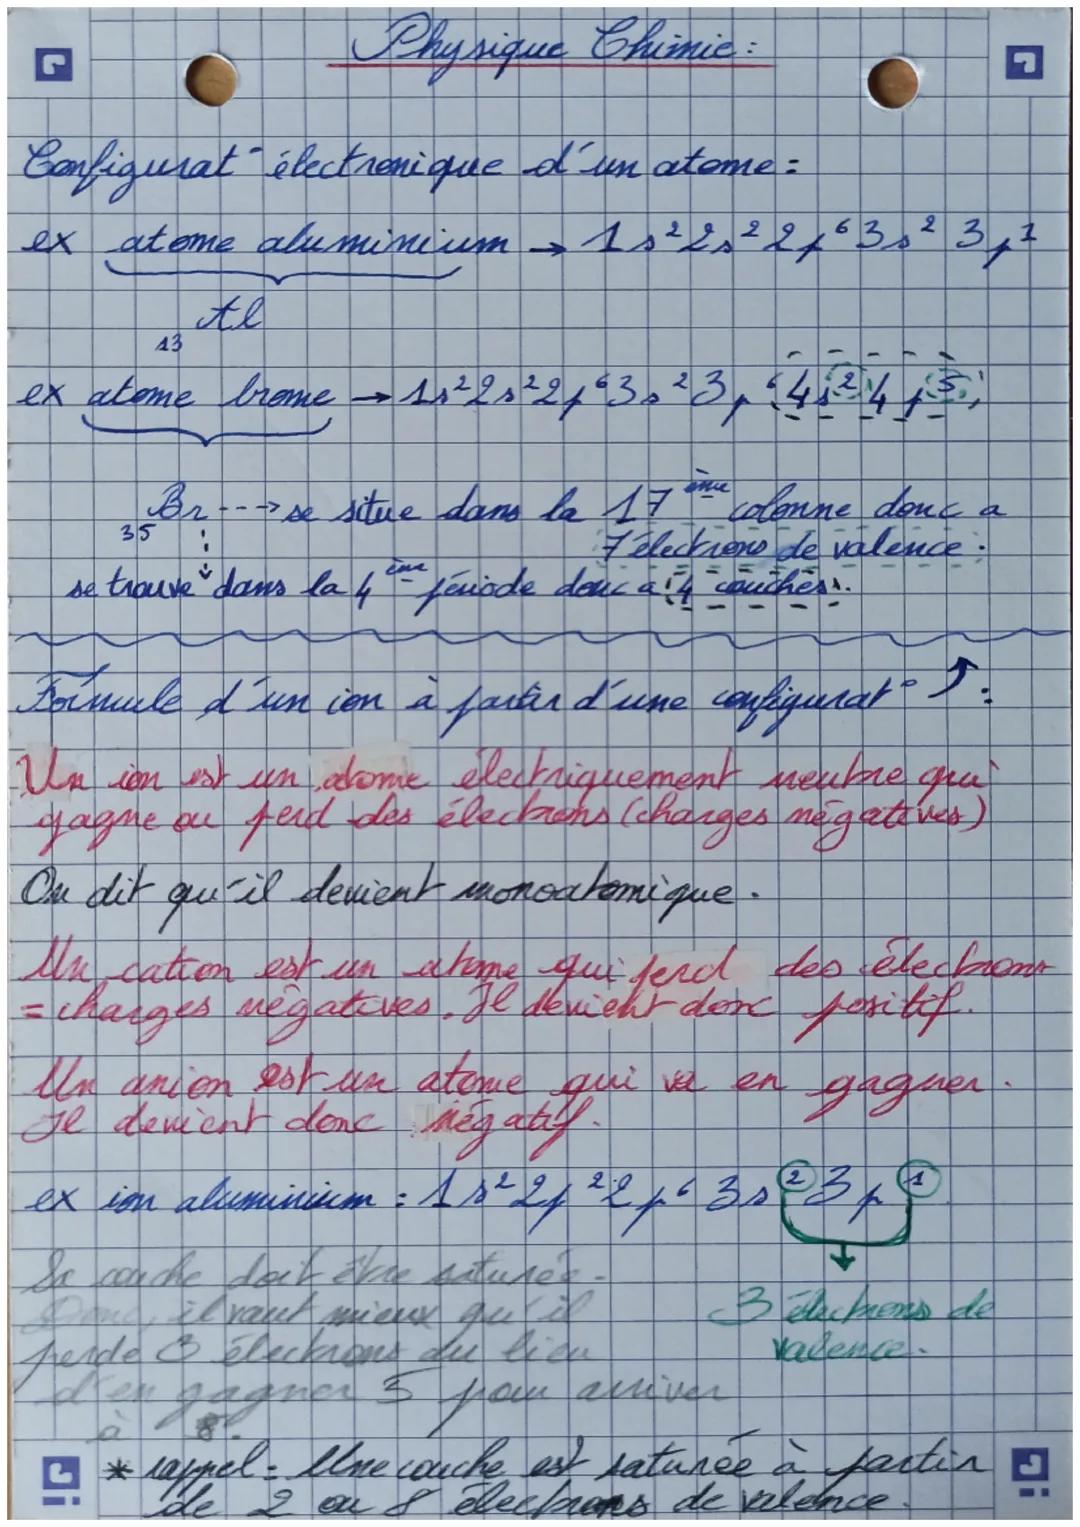 Physique Chimie :
Configurat° électronique d'un atome :
ex atome aluminium → 1s² 2s² 2p⁶ 3s² 3p¹
₁₃Al
ex atome brome → 1s² 2s² 2p⁶ 3s² 3p⁶ 4s² 4p⁵
₃₅Br ---> se situe dans la 17ème colonne donc a
7 électrons de valence.
se trouve dans la 4ème période donc a 4 couches.
Formule d'un ion à partir d'une configurat° ⤴ :
Un ion est un atome électriquement neutre qui
gagne ou perd des électrons (charges négatives)
On dit qu'il devient monoatomique.
Un cation est un atome qui perd des électrons
= charges négatives. Il devient donc positif.
Un anion est un atome qui va en gagner.
Il devient donc négatif.
ex ion aluminium : 1s² 2p² 2p⁶ 3s² 3p¹
Sa couche doit être saturée.
Donc, il vaut mieux qu'il
perde 3 électrons du lieu
d'en gagner 5 pour arriver
à 8.
3 électrons de
valence.
* rappel = Une couche est saturée à partir
de 2 ou 8 électrons de valence.